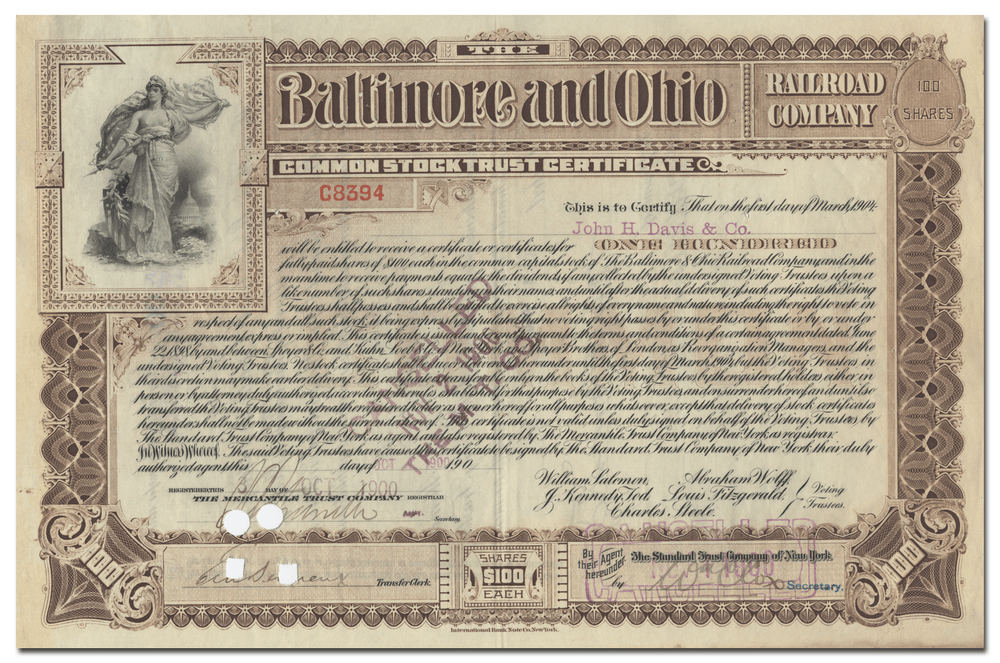 THE
Baltimore and Ohio
RAILROAD
COMPANY
100
SHARES
COMMON STOCK TRUST CERTIFICATE
C8394
This is to Certify That on the first day of March, 1904,
John H. Davis & Co.
will be entitled to receive a certificate or certificates for ONE HUNDRED
fully paid shares of $100 each in the common capital stock of The Baltimore & Ohio Railroad Company, and in the
meantime to receive payments equal to the dividends, if any, collected by the undersigned Voting Trustees upon a
like number of such shares standing in their names, and until after the actual delivery of such certificates the Voting
Trustees shall possess and shall be entitled to exercise all rights of every name and nature, including the right to vote in
respect of any and all such stock, it being expressly stipulated that no voting right passes by or under this certificate or by or under
any agreement express or implied. This certificate is issued pursuant to the terms and conditions of a certain agreement dated June
22, 1898, by and between Speyer & Co. and Kuhn, Loeb & Co. of New York and Speyer Brothers of London, as Reorganization Managers, and the
undersigned Voting Trustees. No stock certificate shall be due or deliverable hereunder and the first day of March 1904, but the Voting Trustees in
their discretion may make earlier delivery. This certificate is transferable only on the books of the Voting Trustees by the registered holders either in
person or by attorney duly authorized according to rules established for that purpose by the Voting Trustees, and on surrender hereof and until so
transferred the Voting Trustees may treat the registered holder as owner hereof for all purposes whatsoever, except that delivery of stock certificates
hereunder shall not be made without the surrender hereof. This certificate is not valid unless duly signed on behalf of the Voting Trustees by
The Standard Trust Company of New York as agent, and also registered by The Mercantile Trust Company of New York as registrar.
In Witness Whereof, The said Voting Trustees have caused this certificate to be signed by The Standard Trust Company of New York their duly
authorized agent this day of OCT 1900 190
REGISTERED THIS DAY OF OCT 1900
THE MERCANTILE TRUST COMPANY REGISTRAR
Asst. Secretary
William Salomon, Abraham Wolff,
J. Kennedy Tod, Louis Fitzgerald,
Charles Steele.
Voting
Trustees.
CANCELLED
CANCELLED
100
Transfer Clerk.
SHARES
$100
EACH
By
their Agent
hereunder
by
The Standard Trust Company of New York,
Secretary.
100
International Bank Note Co. New York.